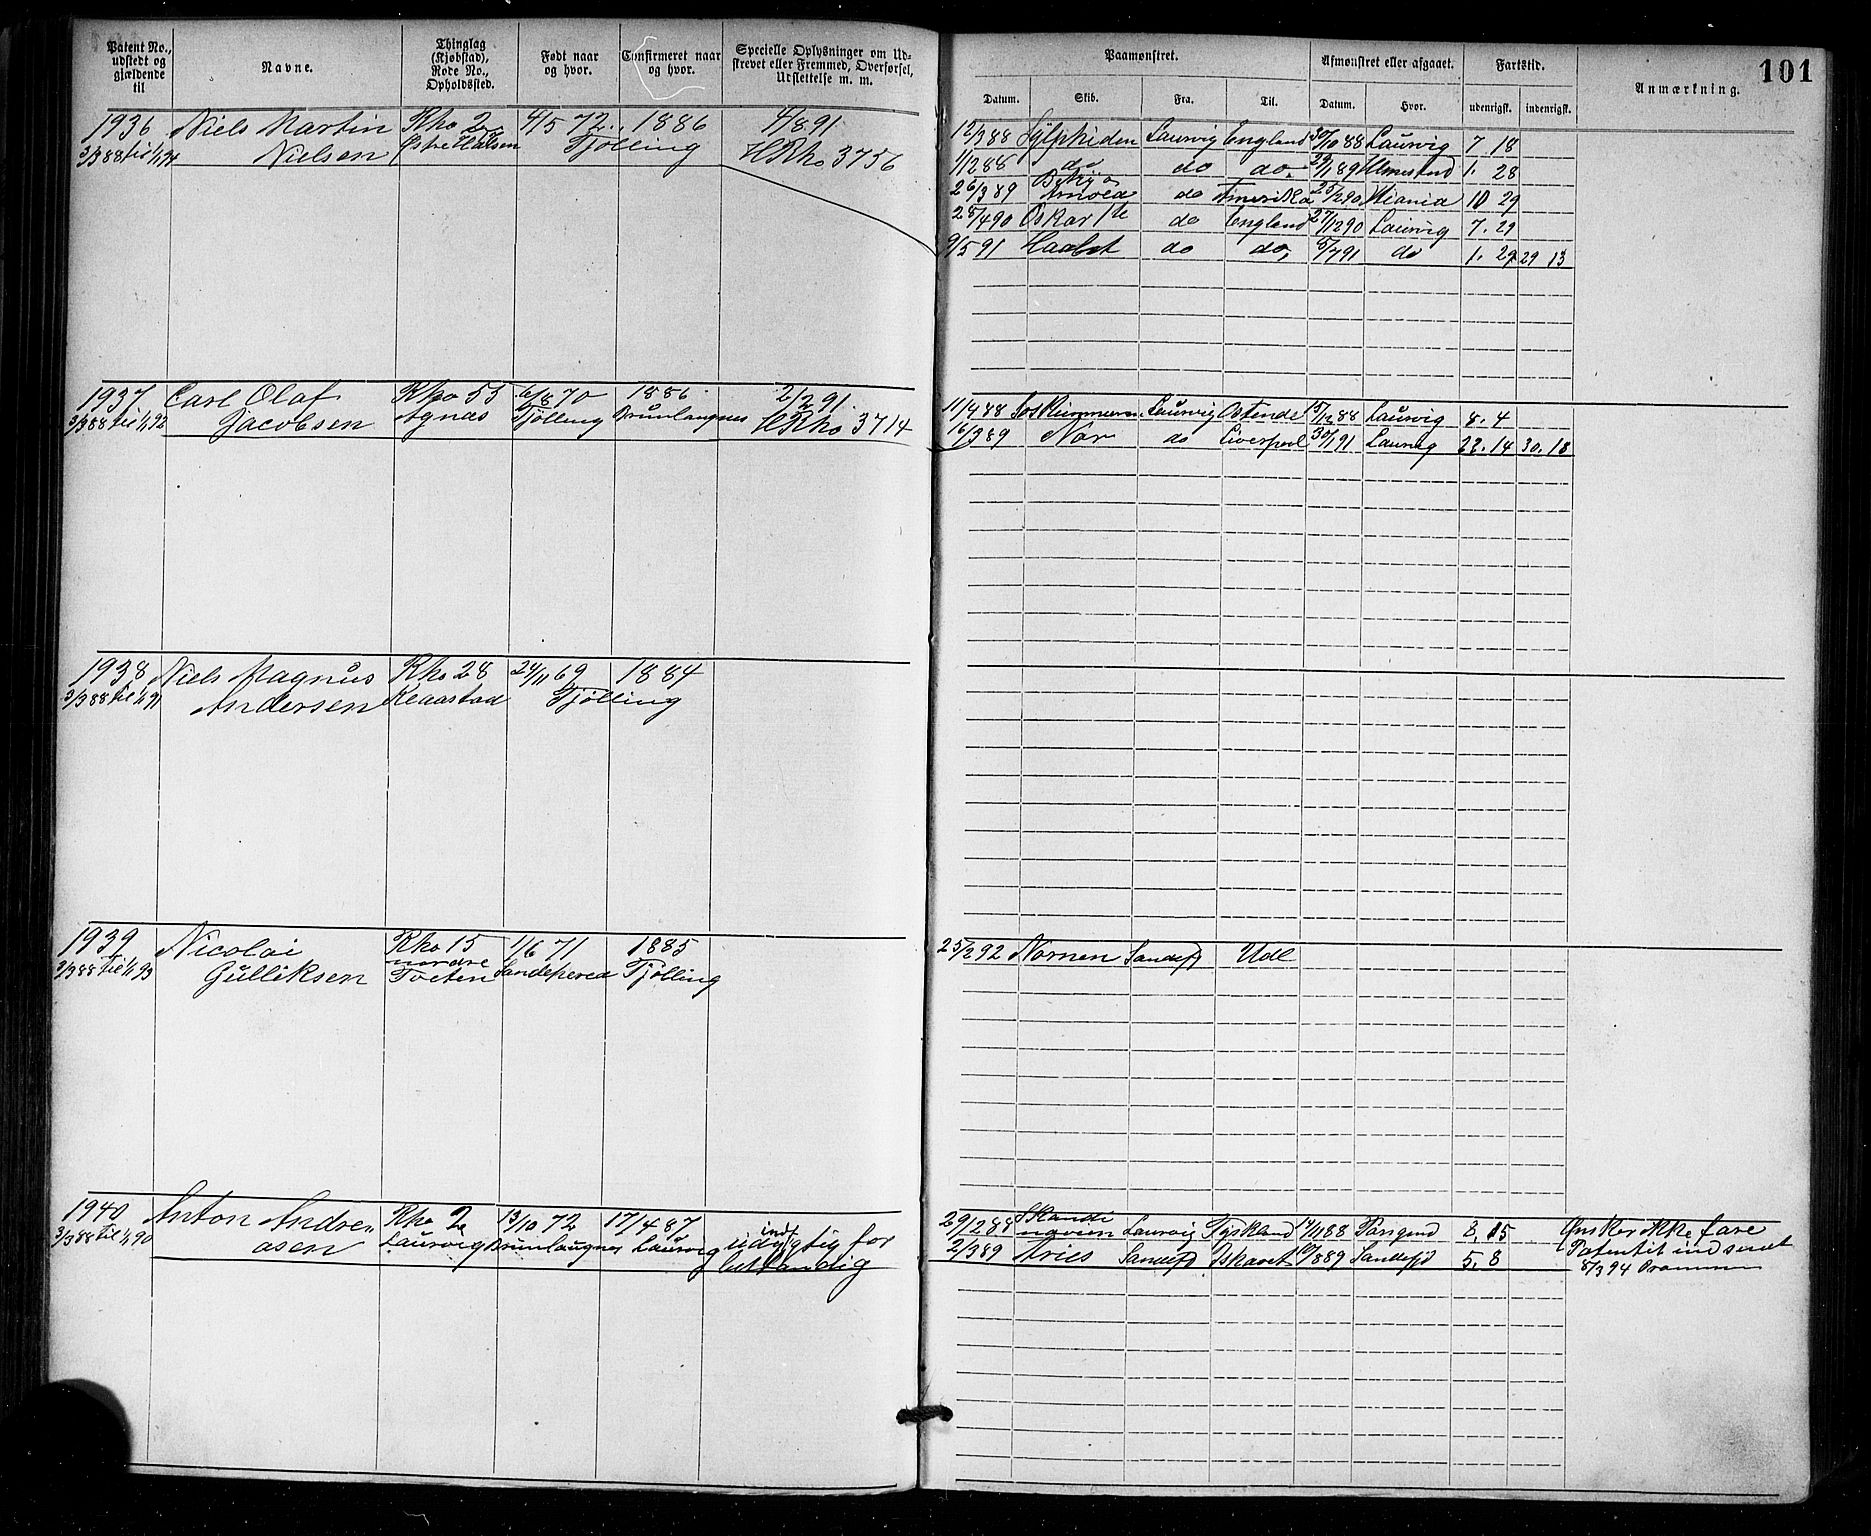 101
Patent No., udstedt og gjældende til
Navne.
Thinglag (Kjøbstad), Rode No., Opholdssted.
Født naar og hvor.
Confirmeret naar og hvor.
Specielle Oplysninger om Udskrevet eller Fremmed, Overførsel, Udslettelse m. m.
Paamønstret.
Afmønstret eller afgaaet.
Fartstid.
Anmærkning.
Datum. Skib. Fra. Til. Datum. Hvor. udenrigsk. indenrigsk.
1936 Niels Martin Rko 2 4/5 72 1886 4/8 91
3/3 88 til 1/1 94 Nielsen Østre Halsen Tjølling HRko 3756
12/3 88 Sylphiden Laurvig England 30/10 88 Laurvig 7 18
1/12 88 do do do. 29/1 89 1. 28
26/3 89 do Amerika 25/2 90 10 29
28/4 90 Oskar do England 27/12 90 Laurvig 7. 29
9/5 91 Haabet do do, 8/7 91 do 1. 29 29 13
1937 Carl Olaf Rko 55 6/8 70 1886 2/2 91.
3/3 88 til 1/1 92 Jacobsen Agnæs Tjølling Brunlaugnes HRko 3714
11/4 88 Laurvig Ostende 15/12 88 Laurvig 8. 4
16/3 89 Nor do Liverpool 30/1 91 Laurvig 22. 14 30. 18
1938 Niels Magnus Rko 28 24/11 69 1884
3/3 88 til 1/1 91 Andersen Klaastad Tjølling
1939 Nicolai Rko 15 1/6 71 1885
3/3 88 til 1/1 93 Gulliksen nordre Tveten Sandeherred Tjølling
25/2 92 Nornen Sandefj Udl
1940 Anton Andre Rko 2 13/10 72 17/4 87
3/3 88 til 1/1 90 asen Laurvig Brunlaugnes Laurvig indt udygtig for bestandig
29/2 88 Skandinavien Laurvig Tyskland 14/11 88 8. 15 Ønsker ikke fare
2/3 89 Aries Sandefj Ishavet 10/8 89 Sandefjd 5. 8 Patentet indsendt
8/3 94 Drammen